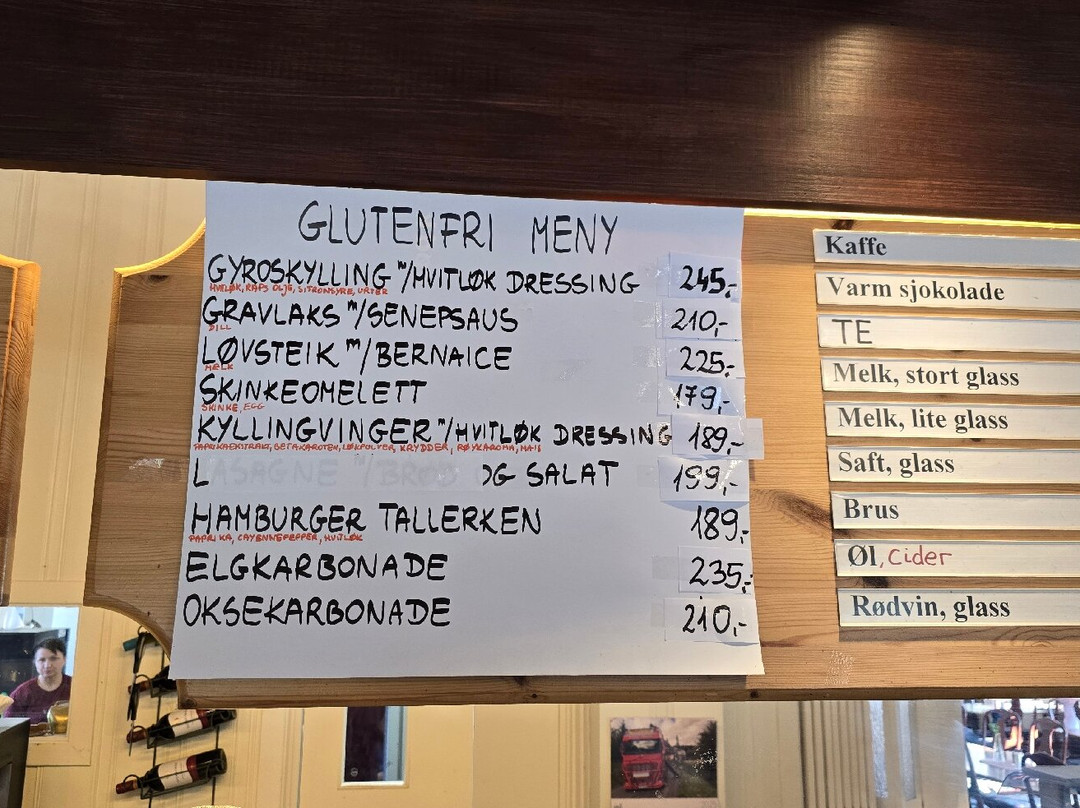 GLUTENFRI MENY
GYROSKYLLING m/HVITLØK DRESSING 245,-
HVITLØK, RAPS OLJE, SITRONSYRE, URTER
GRAVLAKS m/SENEPSAUS 210,-
DILL
LØVSTEIK m/BERNAICE 225,-
MELK
SKINKEOMELETT 179,-
SKINKE, EGG
KYLLINGVINGER m/HVITLØK DRESSING 189,-
PAPRIKAEKSTRAKT, BETAKAROTEN, LØKPULVER, KRYDDER, RØYKAROMA, MAIS
LASAGNE m/BRØD OG SALAT 199,-
HAMBURGER TALLERKEN 189,-
PAPRIKA, CAYENNEPEPPER, HVITLØK
ELGKARBONADE 235,-
OKSEKARBONADE 210,-
Kaffe
Varm sjokolade
TE
Melk, stort glass
Melk, lite glass
Saft, glass
Brus
Øl, cider
Rødvin, glass